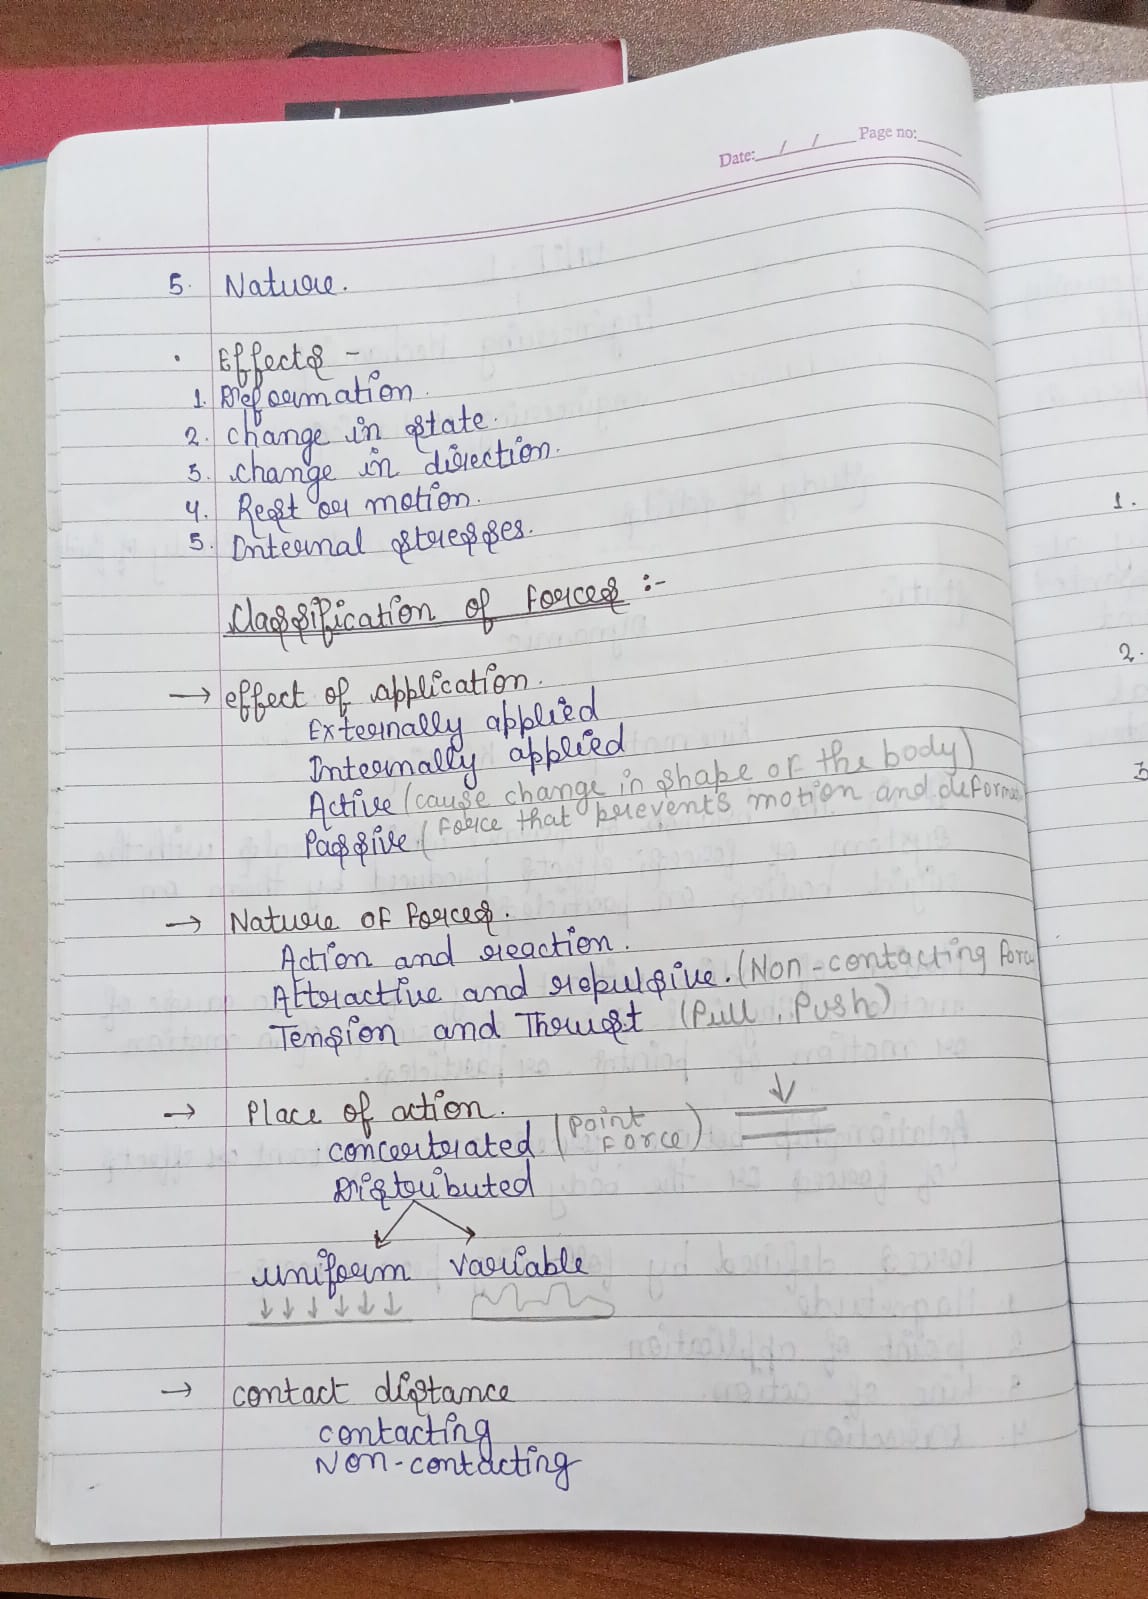 Date: / / Page no:
5. Nature.
· Effects -
1. Deformation.
2. change in state.
3. change in direction.
4. Rest or motion.
5. Internal stresses.
Classification of Forces :-
→ effect of application.
Externally applied
Internally applied
Active (cause change in shape or the body)
Passive (force that prevents motion and deforma
→ Nature of Forces.
Action and reaction.
Attractive and repulsive. (Non-contacting Forc
Tension and Thrust (Pull, Push)
→ Place of action.
concertrated (Point Force)
Distributed
uniform variable
→ contact distance
contacting
Non-contacting
1.
2.
3